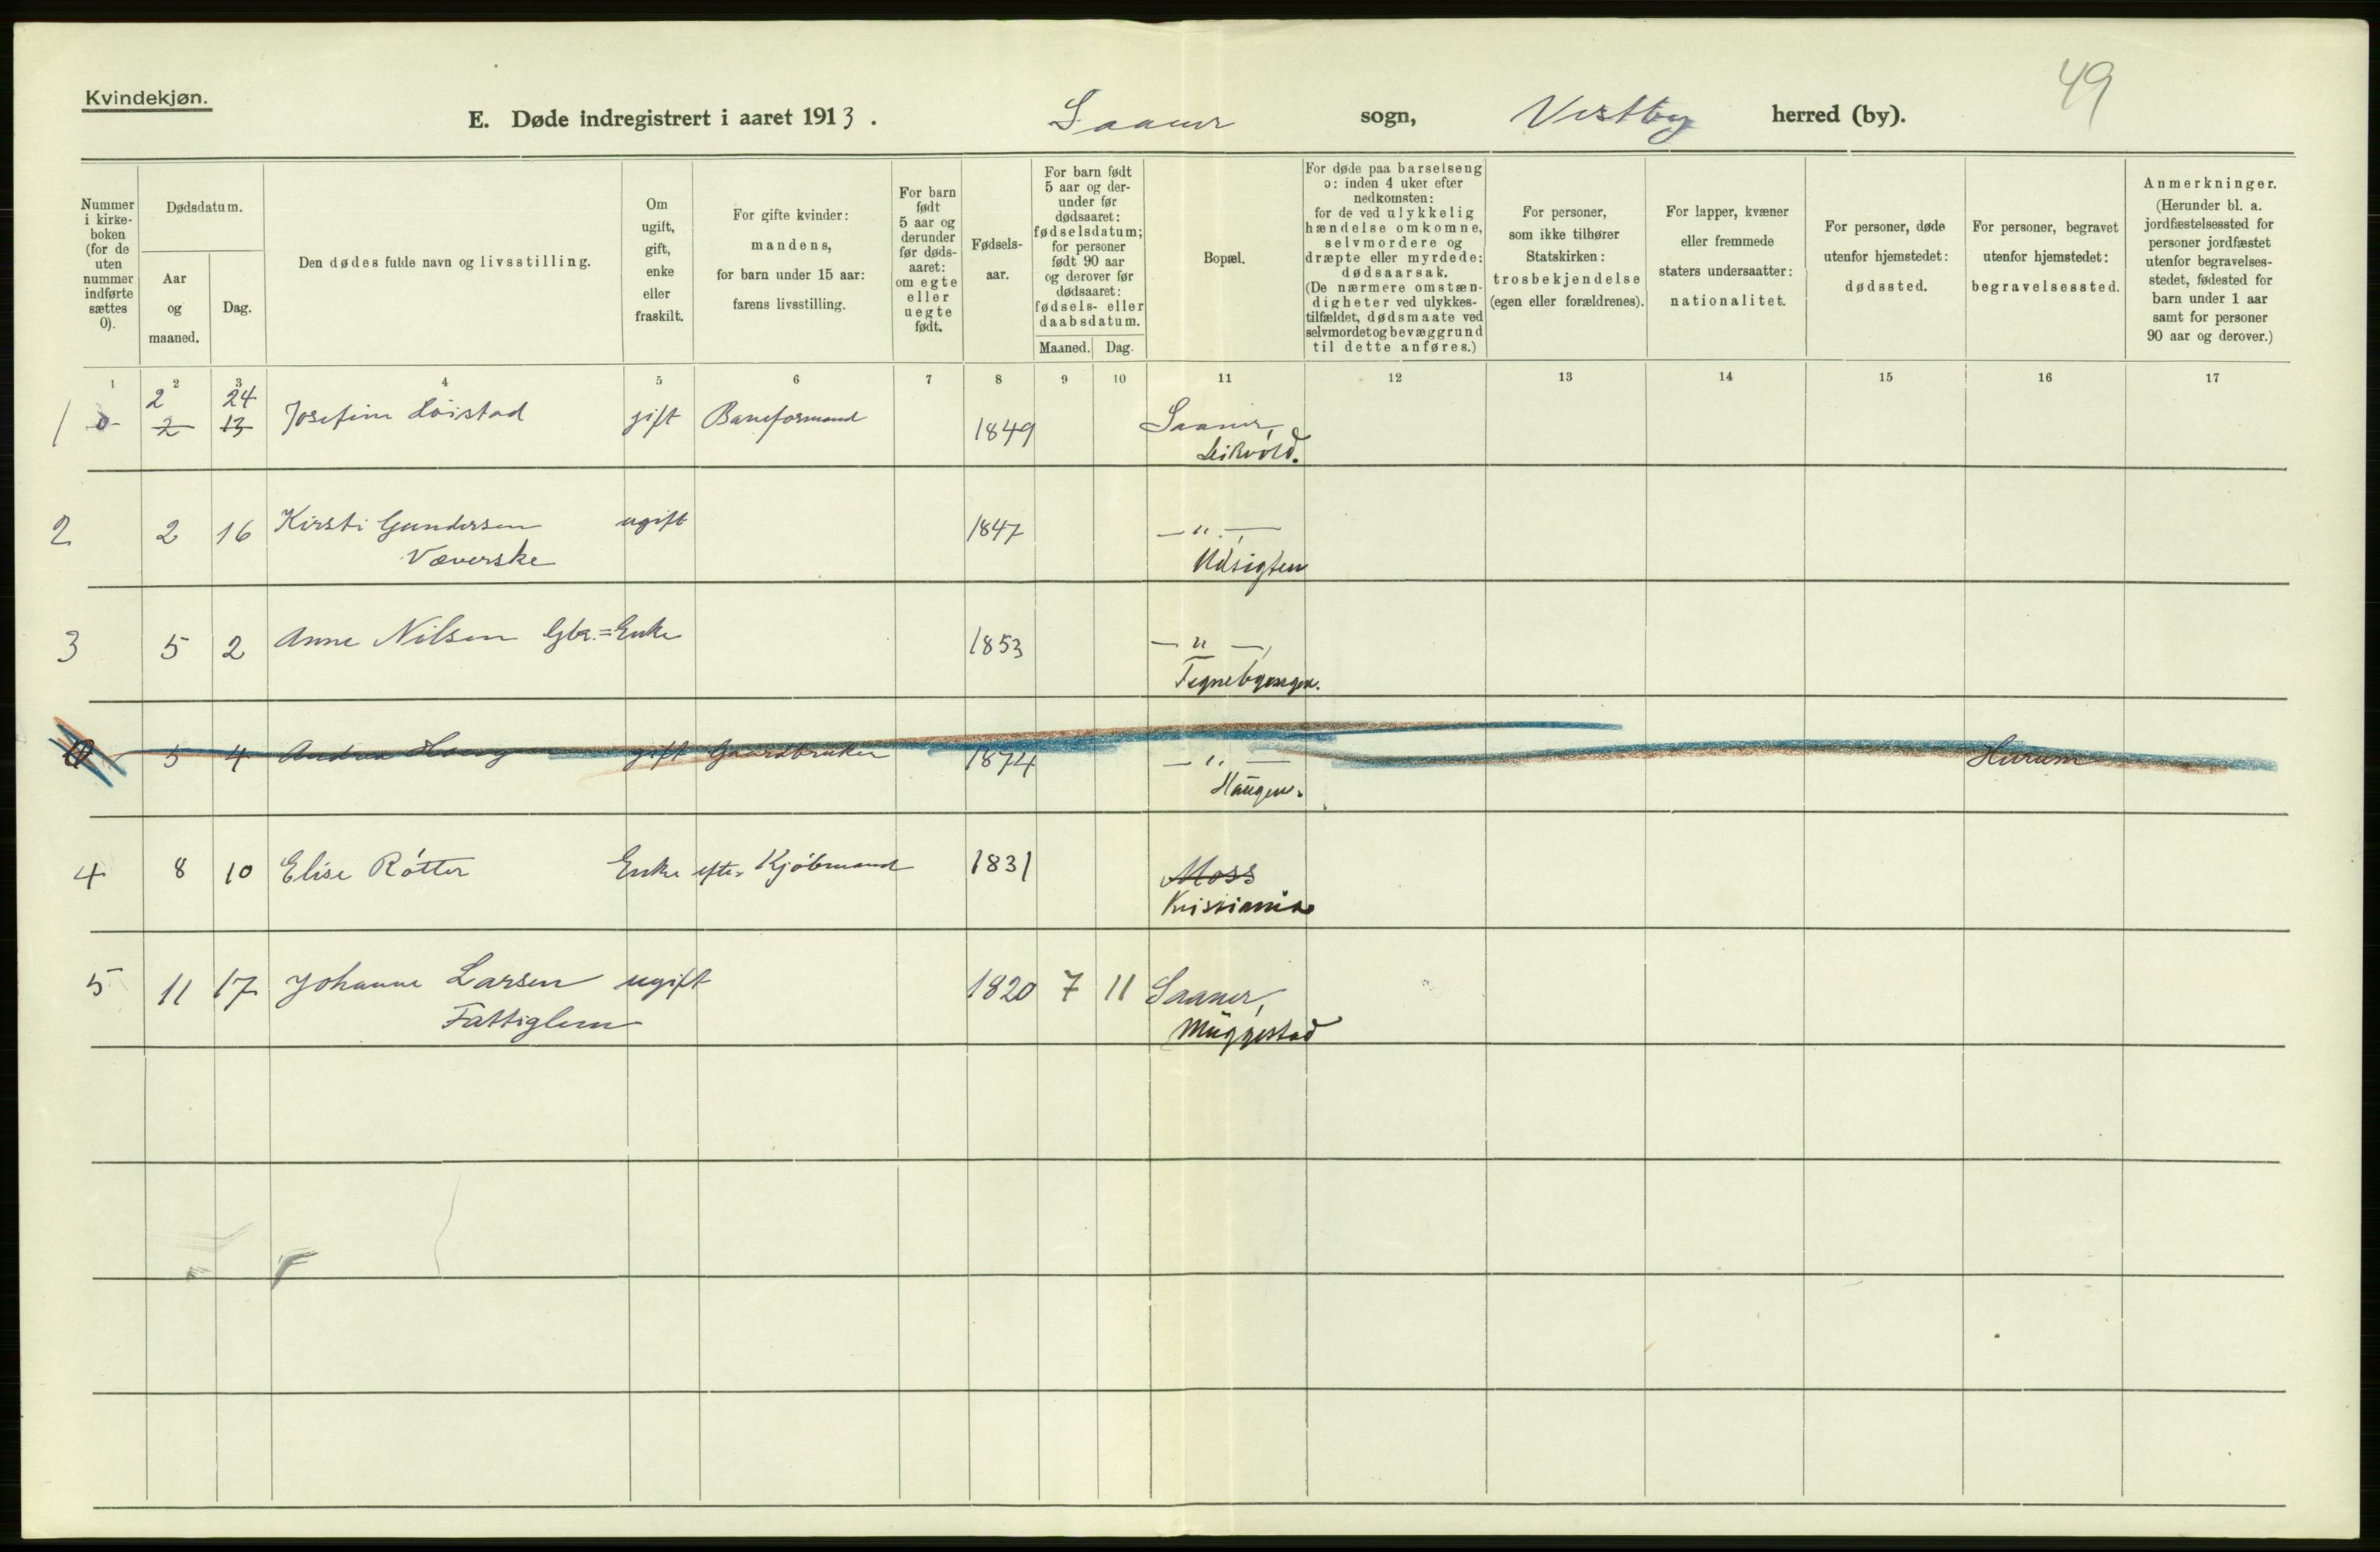 Kvindekjøn.
49
E. Døde indregistrert i aaret 1913. Saaner sogn, Vestby herred (by).
Nummer i kirkeboken (for de uten nummer indførte sættes 0).
Dødsdatum.
Aar og maaned.
Dag.
Den dødes fulde navn og livsstilling.
Om ugift, gift, enke eller fraskilt.
For gifte kvinder: mandens, for barn under 15 aar: farens livsstilling.
For barn født 5 aar og derunder før dødsaaret: om egte eller uegte født.
Fødselsaar.
For barn født 5 aar og derunder før dødsaaret: fødselsdatum; for personer født 90 aar og derover før dødsaaret: fødsels- eller daabsdatum.
Maaned. Dag.
Bopæl.
For døde paa barselseng ɔ: inden 4 uker efter nedkomsten: for de ved ulykkelig hændelse omkomne, selvmordere og dræpte eller myrdede: dødsaarsak. (De nærmere omstændigheter ved ulykkestilfældet, dødsmaate ved selvmordet og bevæggrund til dette anføres.)
For personer, som ikke tilhører Statskirken: trosbekjendelse (egen eller forældrenes).
For lapper, kvæner eller fremmede staters undersaatter: nationalitet.
For personer, døde utenfor hjemstedet: dødssted.
For personer, begravet utenfor hjemstedet: begravelsessted.
Anmerkninger. (Herunder bl. a. jordfæstelsessted for personer jordfæstet utenfor begravelsesstedet, fødested for barn under 1 aar samt for personer 90 aar og derover.)
1 2 3 4 5 6 7 8 9 10 11 12 13 14 15 16 17
2 24
1 0 2 13 Josefine Løistad gift Baneformand 1849 Saaner,
2 2 16 Kirsti Gundersen ugift 1847 — " —,
Væverske Udsigten
3 5 2 Anne Nilsen Gbr.= Enke 1853 — " —,
5 4 Andrea Haug gift Gaardbruker 1874 — " — Hurum
Haugen.
4 8 10 Elise Rötter Enke efter Kjøbmand 1831 Moss
Kristiania
5 11 17 Johanne Larsen ugift 1820 7 11 Saaner,
Fattiglem Muggestad